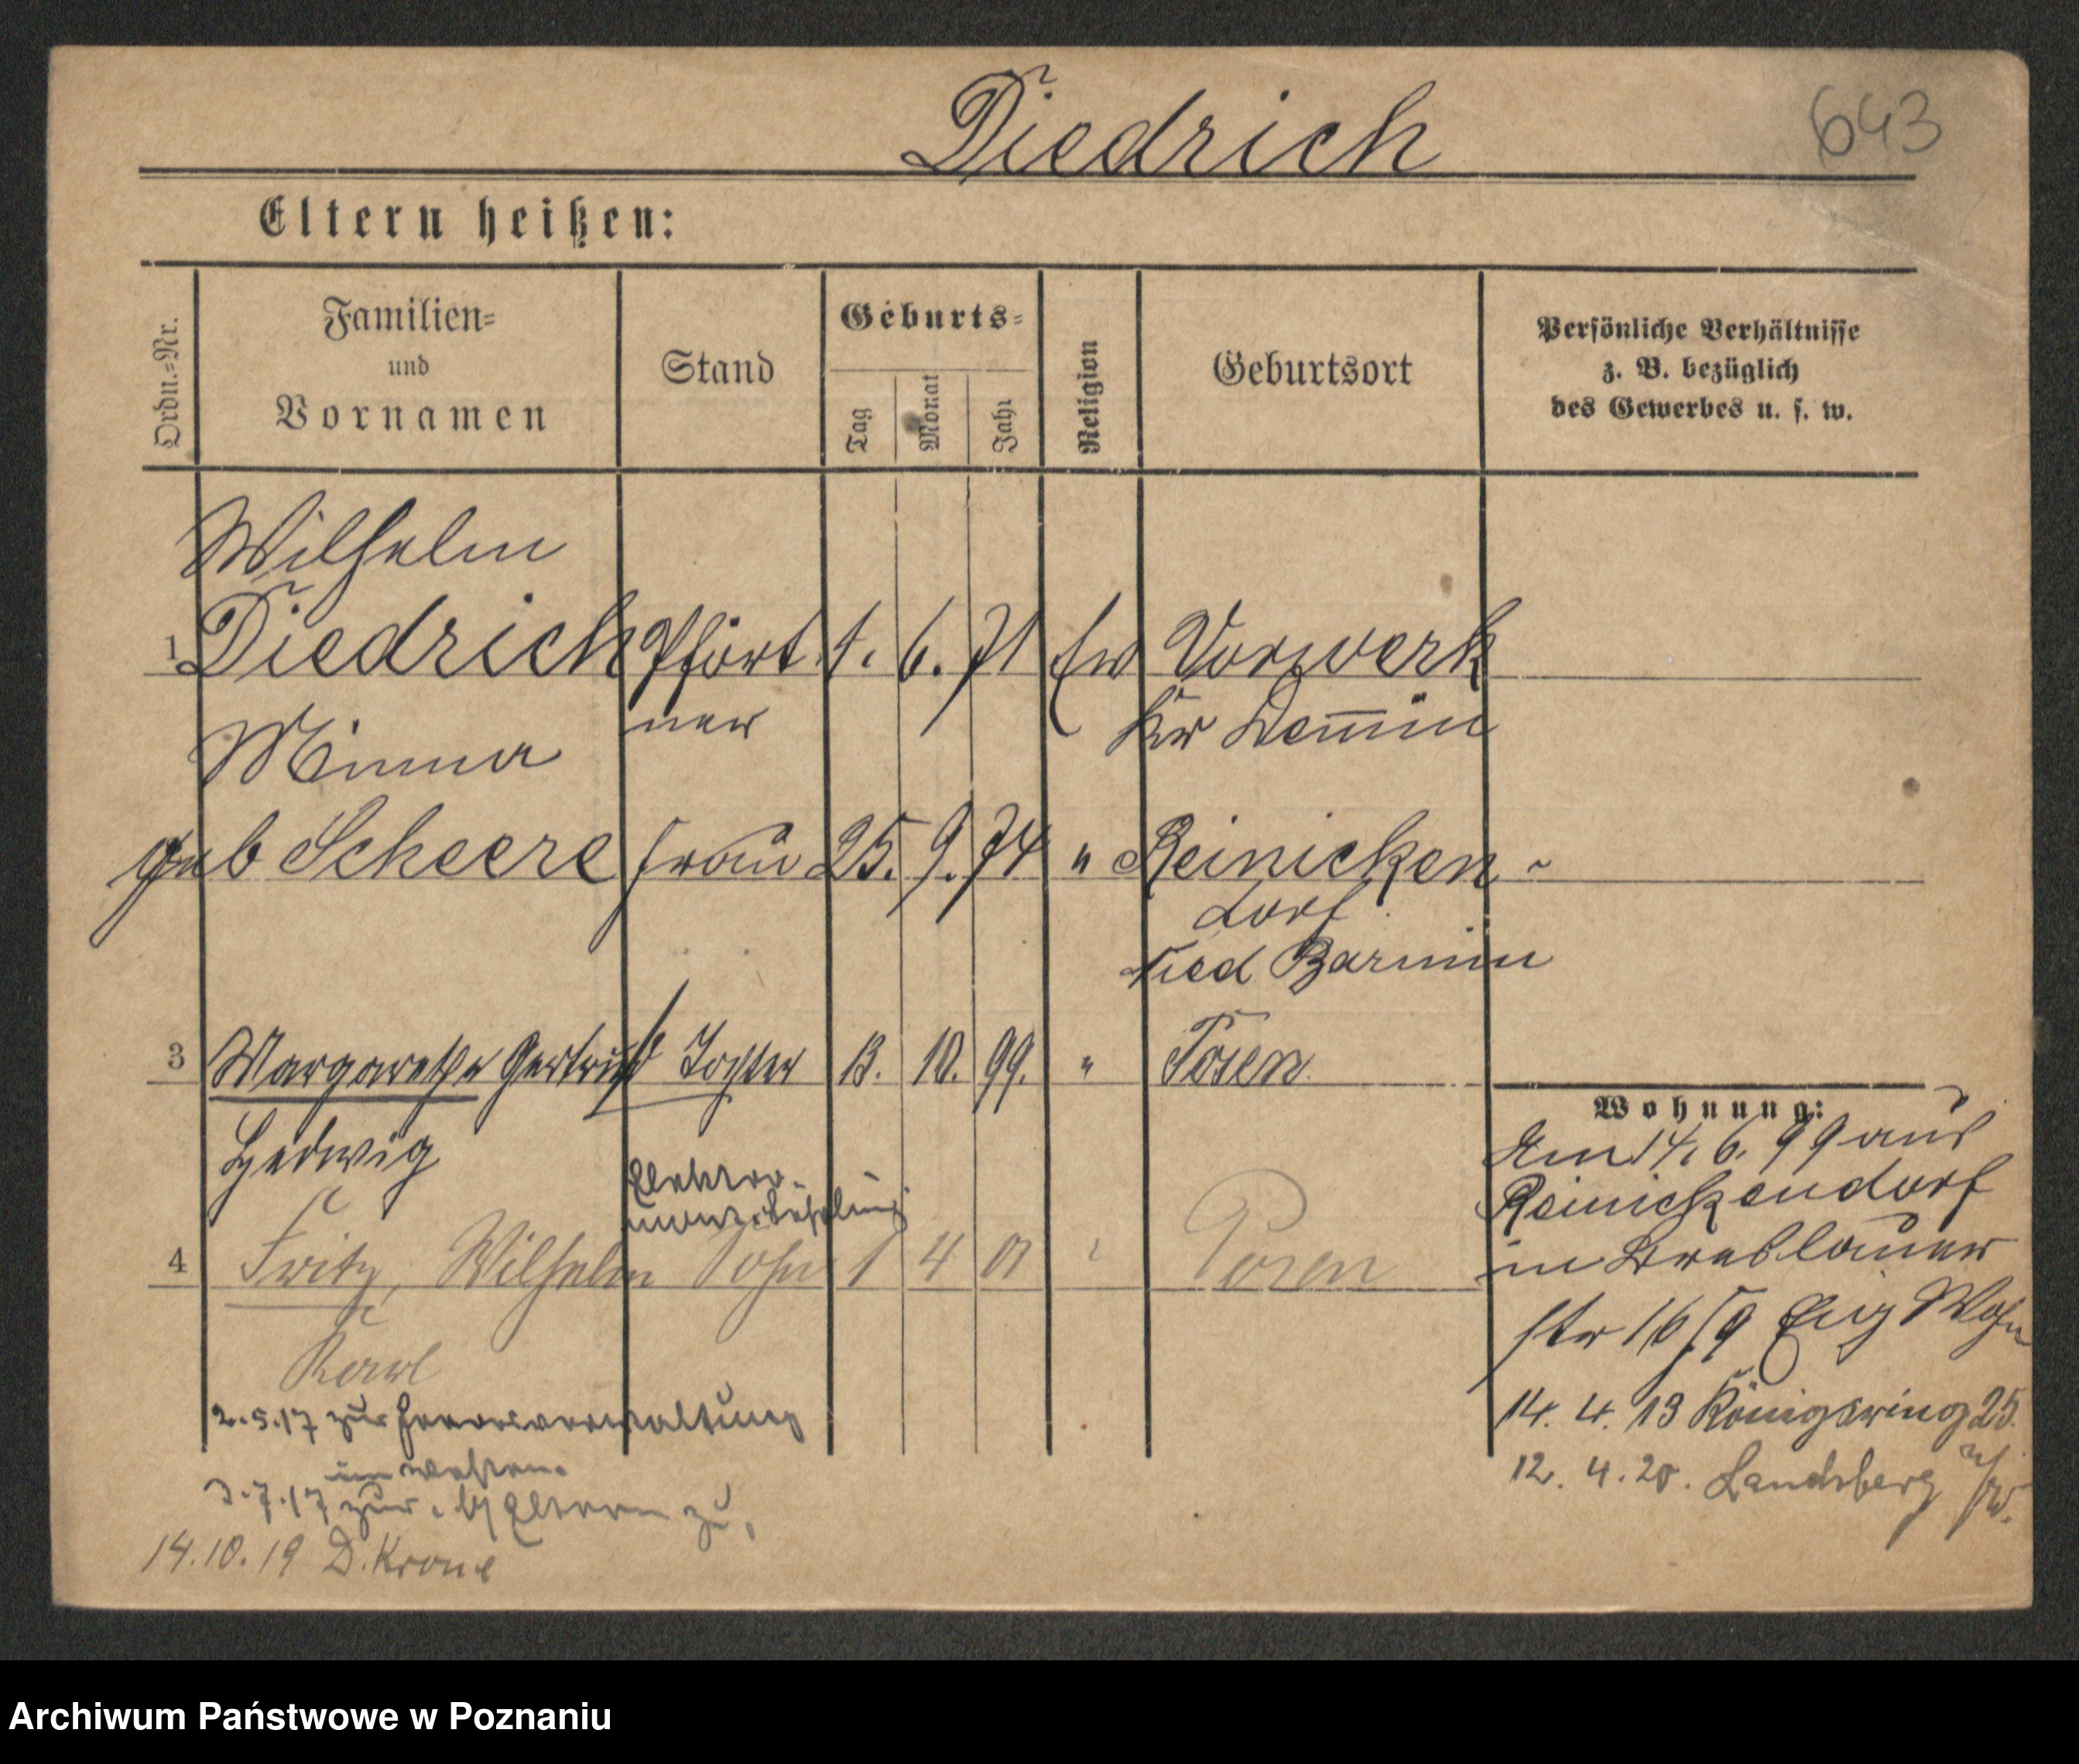 Diedrich
643
Eltern heißen:
Ordn.-Nr.
Familien-
und
Vornamen
Stand
Geburts-
Tag
Monat
Jahr
Religion
Geburtsort
Persönliche Verhältnisse
z. B. bezüglich
des Gewerbes u. s. w.
Wilhelm
1 Diedrich Pfört 1. 6. 71 Ev Vorwerk
ner Kr Demmin
Minna
geb Scheere Frau 25. 9. 74 " Reinicken-
dorf
Nied Barnim
3 Margarethe Gertrud Tochter 13. 10. 99. " Posen
Hedwig
Elektro-
4 Fritz, Wilhelm Sohn 1 4 01 " Posen
Karl
Wohnung:
Am 14. 6. 99 aus
Reinickendorf
in Breslauer
str 16/9 Eig Wohn
14. 4. 13 Königsring 25.
12. 4. 20. Landsberg a/W.
2.5.17 zur Heeresverwaltung
im Westen.
3.7.17 zur. Eltern zu.
14.10.19 D. Krone
Archiwum Państwowe w Poznaniu